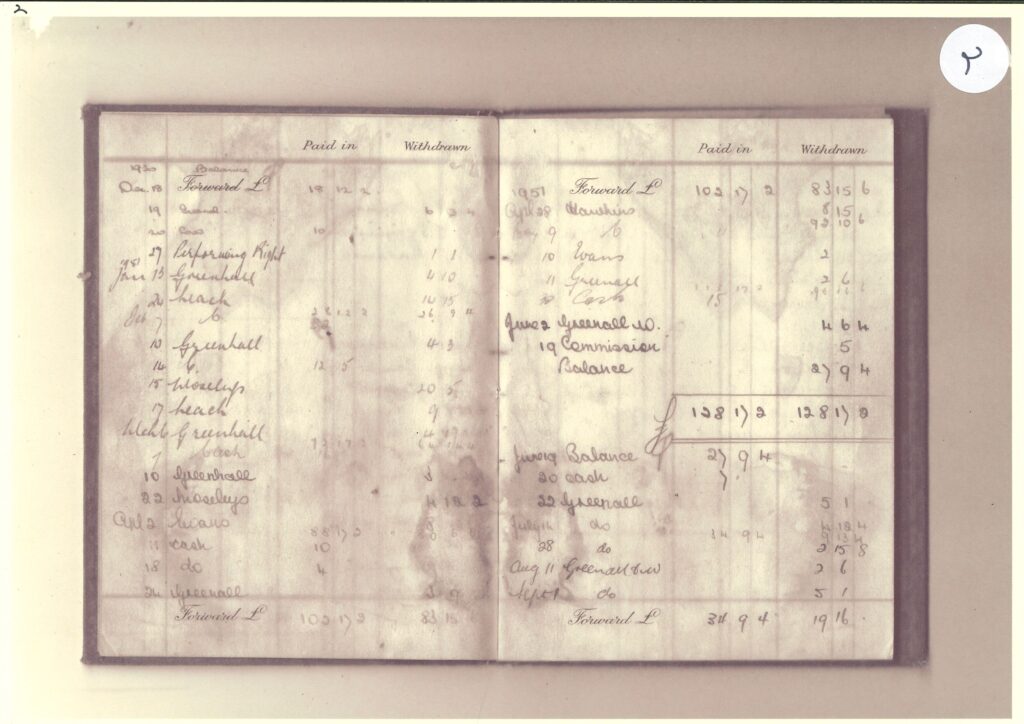 2
2
Paid in Withdrawn
Balance
Dec 18 Forward £ 18 12 2
19 6 3 4
20 10
27 Performing Right 1 1
Jan 13 Greenhall 4 10
24 Leach 14 15
Feb 7 28 12 2 26 9 4
10 Greenhall 4 3
14 12 5
15 Moseleys 20 5
17 Leach 9
Greenhall
7 Cash
10 Greenhall
22 Moseleys 4 12 2
Apl 2 Evans 88 17 2 8
11 Cash 10
18 do 4
24 Greenall
Forward £ 102 17 2 83 15
Paid in Withdrawn
1951 Forward £ 102 17 2 83 15 6
Apl 28 Hawkins 8 15
9 92 10 6
10 Evans 2
11 Greenall 2 6
Cash 15
June 2 Greenall 4 6 4
19 Commission 5
Balance 27 9 4
128 17 2 128 17 2
June 19 Balance 27 9 4
20 cash 7
22 Greenall 5 1
July 14 do 34 9 4 4 18 4
28 do 2 15 8
Aug 11 Greenall 2 6
Sept 1 do 5 1
Forward £ 34 9 4 19 16